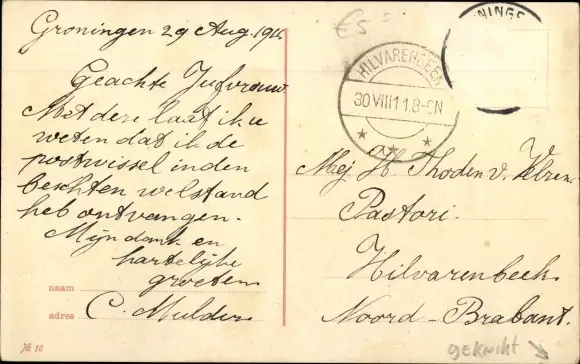 Groningen 29 Aug. 1911
Geachte Jufvrouw
Met deze laat ik u
weten dat ik de
postwissel in den
besten welstand
heb ontvangen.
Mijn dank en
hartelijke
groeten
naam
adres C. Mulder
№ 16
€5
NINGE
HILVARENBEEK
30 VIII 11 1.8-9N
Mej. H. Thoden v. Velzen
Pastori.
Hilvarenbeek
Noord-Brabant.
geknickt